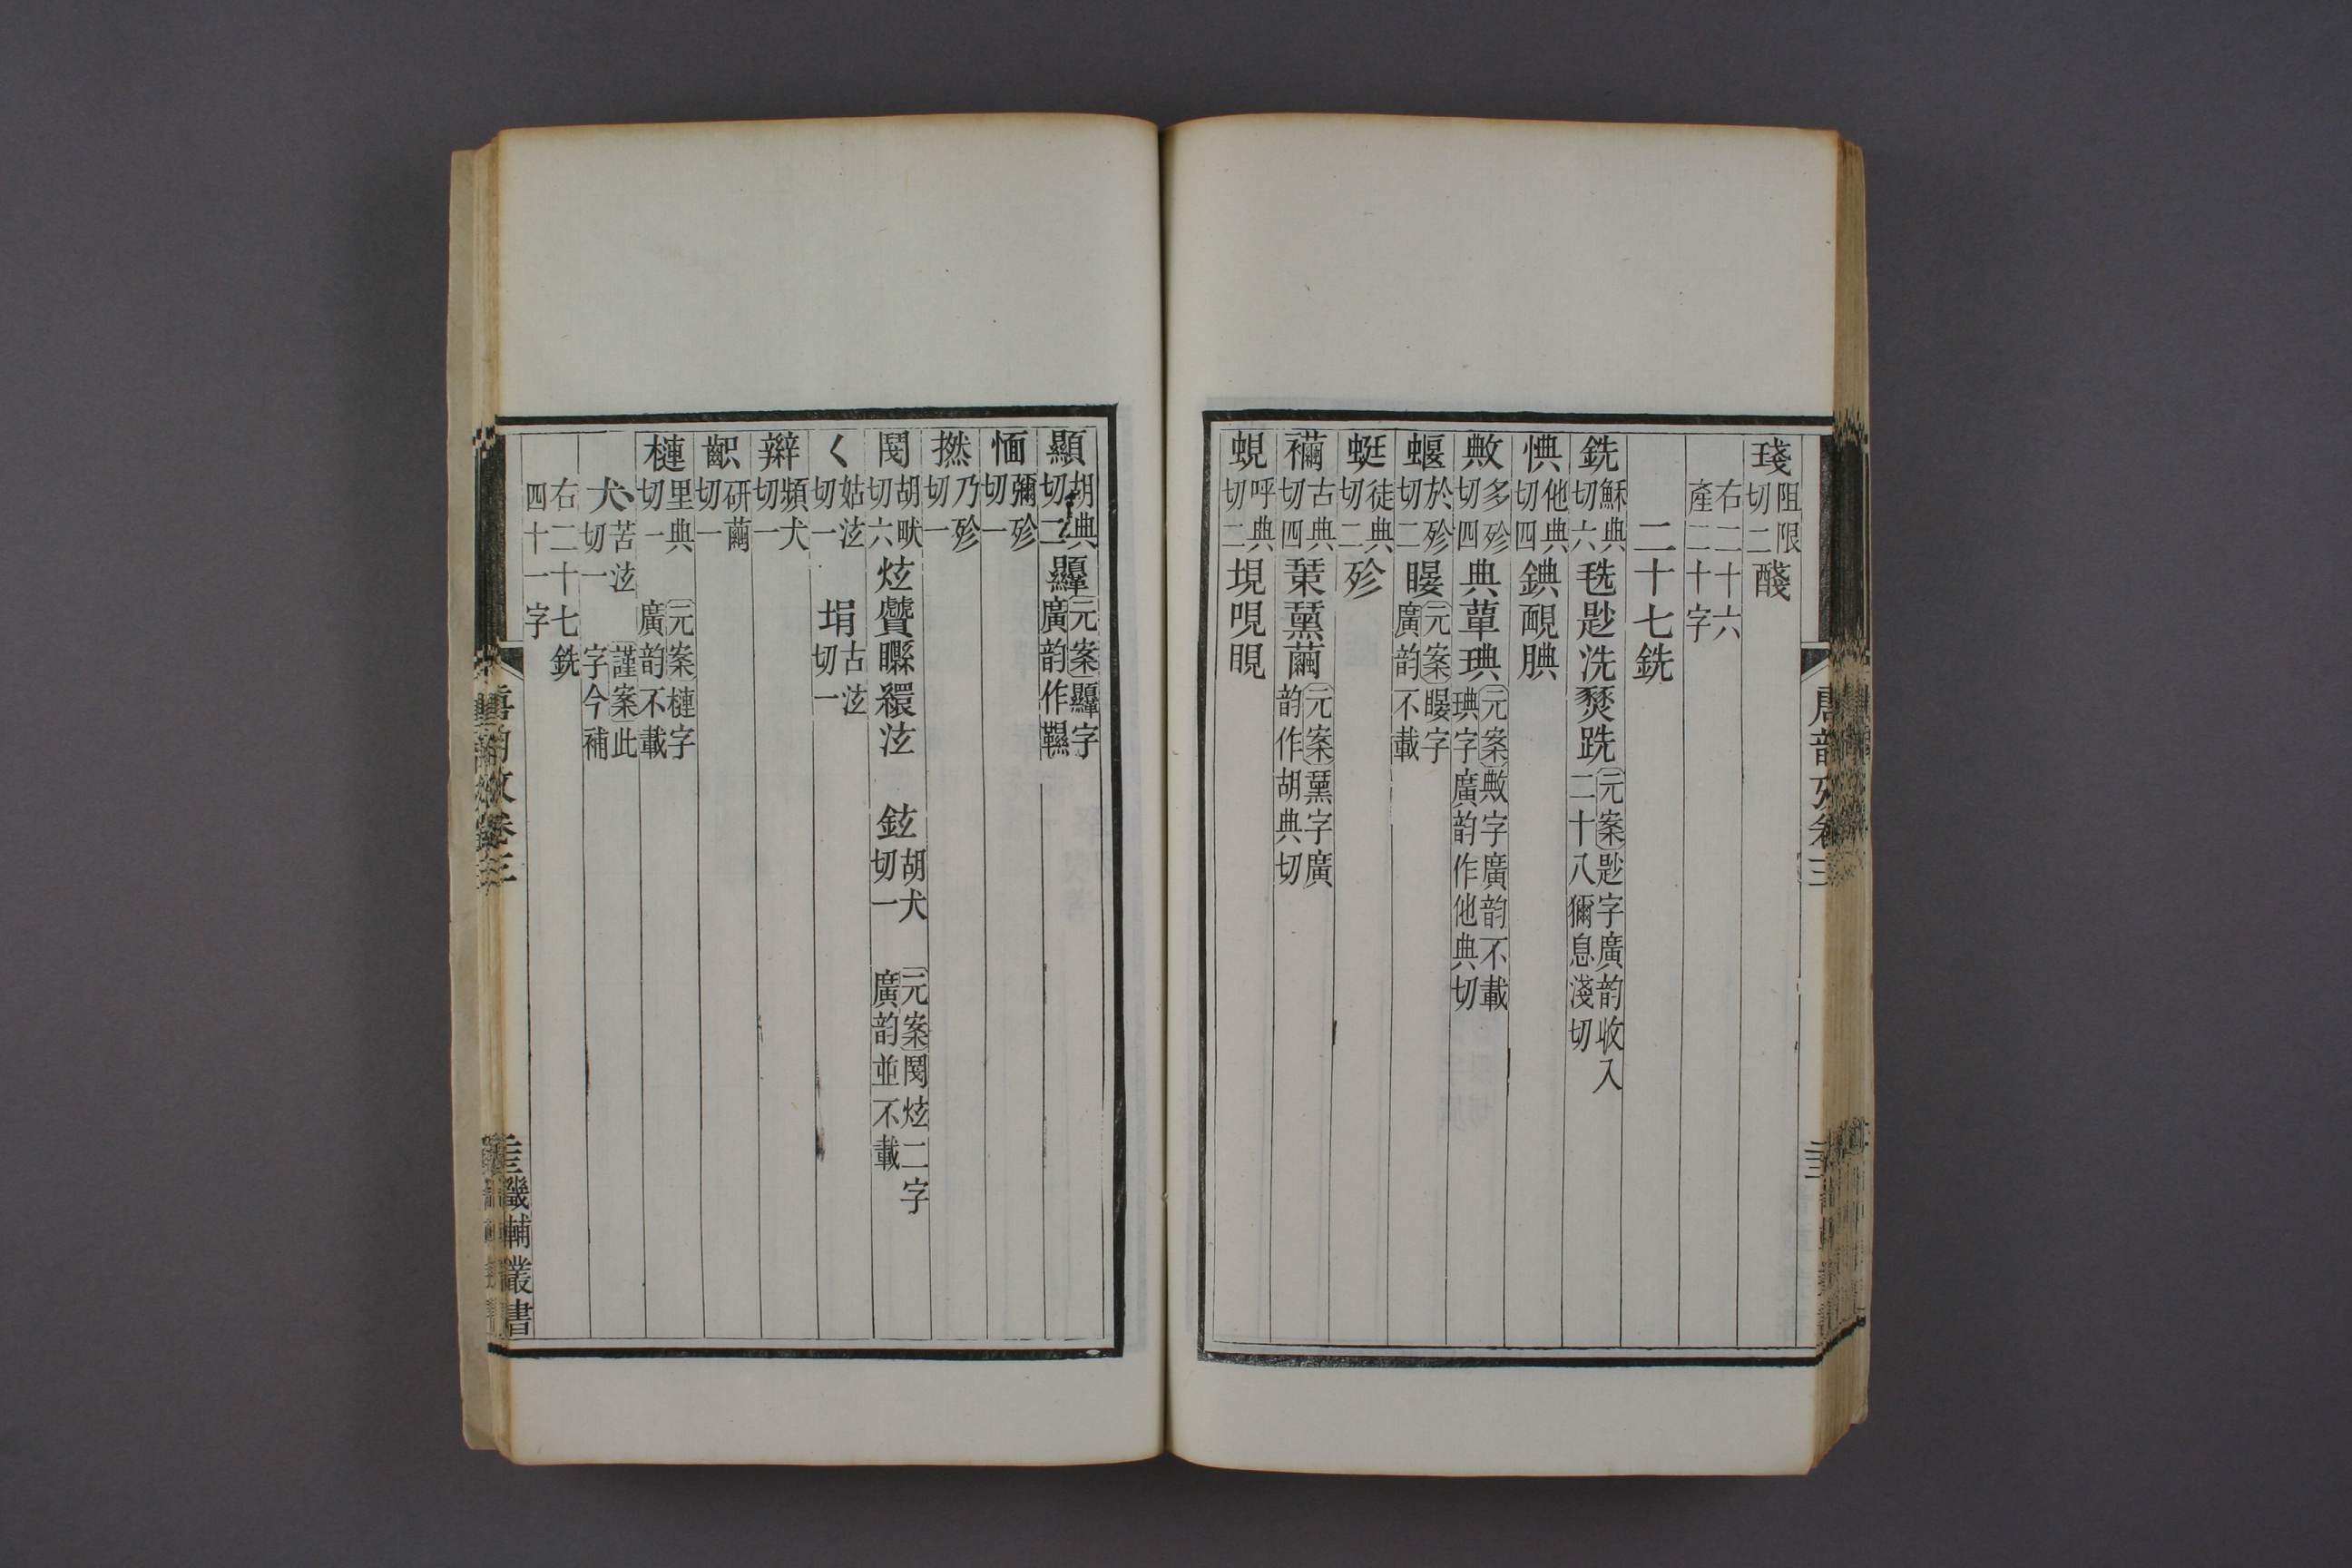 琖阻限切二醆
右二十六產二十字
二十七銑
銑穌典切六毨尟洗燹跣元案尟字廣韵收入二十八獮息淺切
惧他典切四錪靦腆
敟多殄切四典蕇琠元案敟字廣韵不載琠字廣韵作他典切
蝘於殄切二䁙元案䁙字廣韵不載
蜓徒典切二殄
襺古典切四䅌䵤繭元案䵤字廣韵作胡典切
蜆呼典切二垷哯晛
顯胡典切二韅元案韅字廣韵作䪓
愐彌殄切一
撚乃殄切一
䦧胡畎切六炫贙䜌繯泫 鉉胡犬切一 元案䦧炫二字廣韵並不載
く姑泫切一 埍古泫切一
辮頻犬切一
齞研繭切一
槤里典切一 元案槤字廣韵不載
犬苦泫切一 謹案此字今補
右二十七銑四十一字
唐韵攷卷三
畿輔叢書